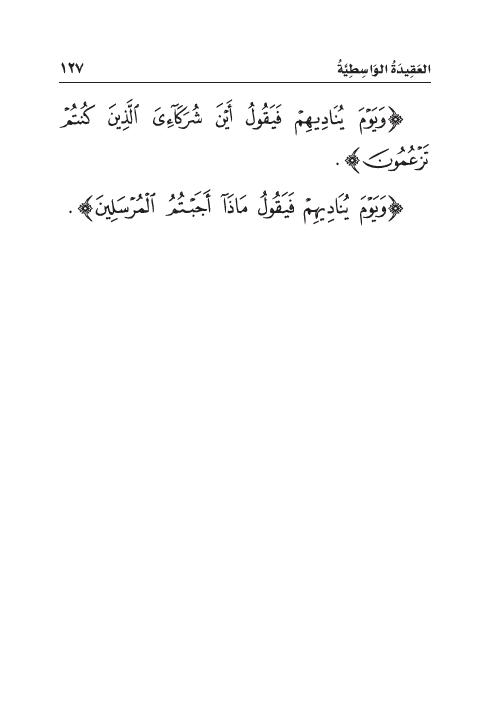 العَقِيدَةُ الوَاسِطِيَّةُ ١٢٧
﴿وَيَوْمَ يُنَادِيهِمْ فَيَقُولُ أَيْنَ شُرَكَآءِىَ ٱلَّذِينَ كُنتُمْ
تَزْعُمُونَ﴾ .
﴿وَيَوْمَ يُنَادِيهِمْ فَيَقُولُ مَاذَآ أَجَبْتُمُ ٱلْمُرْسَلِينَ﴾ .